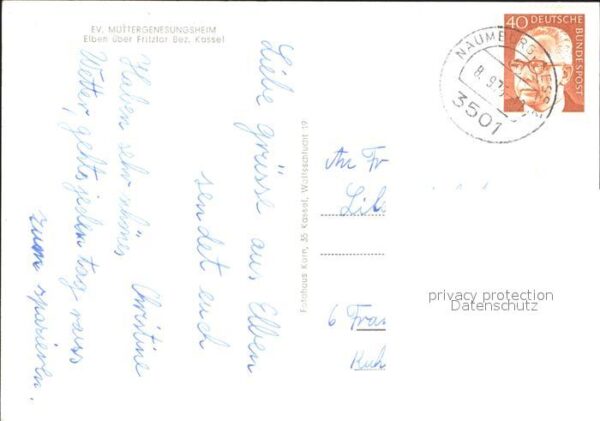 EV. MÜTTERGENESUNGSHEIM
Elben über Fritzlar Bez. Kassel
Liebe grüsse aus Elben
sendet euch
Christine
Haben sehr schönes
Wetter, gehts jeden tag raus
zum spazieren.
Fotohaus Kurn, 35 Kassel, Wolfsschlucht 19
40 DEUTSCHE
BUNDESPOST
NAUMBURG
8.9.7
3501
An Fr
6 Fran
privacy protection
Datenschutz